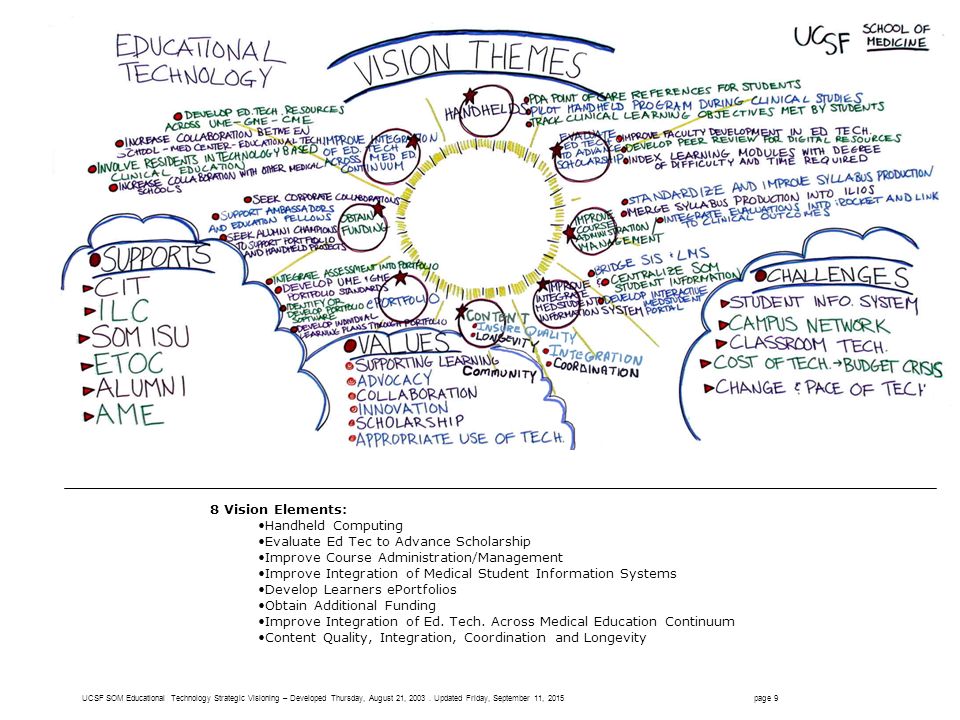 EDUCATIONAL
TECHNOLOGY
VISION THEMES
UCSF SCHOOL OF
MEDICINE
HANDHELDS
PDA POINT OF CARE REFERENCES FOR STUDENTS
PILOT HANDHELD PROGRAM DURING CLINICAL STUDIES
TRACK CLINICAL LEARNING OBJECTIVES MET BY STUDENTS
EVALUATE
ED TECH
TO ADVANCE
SCHOLARSHIP
IMPROVE FACULTY DEVELOPMENT IN ED TECH.
DEVELOP PEER REVIEW FOR DIGITAL RESOURCES
INDEX LEARNING MODULES WITH DEGREE
OF DIFFICULTY AND TIME REQUIRED
IMPROVE
COURSE
ADMINISTRATION/
MANAGEMENT
STANDARDIZE AND IMPROVE SYLLABUS PRODUCTION
MERGE SYLLABUS PRODUCTION INTO ILIOS
INTEGRATE EVALUATIONS INTO iROCKET AND LINK
TO CLINICAL OUTCOMES
IMPROVE &
INTEGRATE
MEDSTUDENT
INFORMATION SYSTEM
BRIDGE SIS & LMS
CENTRALIZE SOM
STUDENT INFORMATION
DEVELOP INTERACTIVE
MEDSTUDENT
PORTAL
CONTENT
INSURE QUALITY
LONGEVITY
INTEGRATION
COORDINATION
COMMUNITY
ePORTFOLIO
INTEGRATE ASSESSMENT INTO PORTFOLIO
DEVELOP UME & GME
PORTFOLIO STANDARDS
IDENTIFY OR
DEVELOP PORTFOLIO
SOFTWARE
DEVELOP INDIVIDUAL
LEARNING PLANS THROUGH PORTFOLIO
OBTAIN
FUNDING
SEEK CORPORATE COLLABORATIONS
SUPPORT AMBASSADORS
AND EDUCATION FELLOWS
SEEK ALUMNI CHAMPIONS
TO SUPPORT PORTFOLIO
AND HANDHELD PROJECTS
IMPROVE INTEGRATION
OF ED. TECH
ACROSS MED ED.
CONTINUUM
DEVELOP ED.TECH. RESOURCES
ACROSS UME-GME-CME
INCREASE COLLABORATION BETWEEN
SCHOOL-MED CENTER-EDUCATIONAL TECH
INVOLVE RESIDENTS IN TECHNOLOGY BASED
CLINICAL EDUCATION
INCREASE COLLABORATION WITH OTHER MEDICAL
SCHOOLS
SUPPORTS
CIT
ILC
SOM ISU
ETOC
ALUMNI
AME
VALUES
SUPPORTING LEARNING
ADVOCACY
COLLABORATION
INNOVATION
SCHOLARSHIP
APPROPRIATE USE OF TECH.
CHALLENGES
STUDENT INFO. SYSTEM
CAMPUS NETWORK
CLASSROOM TECH.
COST OF TECH.→BUDGET CRISIS
CHANGE & PACE OF TECH
8 Vision Elements:
•Handheld Computing
•Evaluate Ed Tec to Advance Scholarship
•Improve Course Administration/Management
•Improve Integration of Medical Student Information Systems
•Develop Learners ePortfolios
•Obtain Additional Funding
•Improve Integration of Ed. Tech. Across Medical Education Continuum
•Content Quality, Integration, Coordination and Longevity
UCSF SOM Educational Technology Strategic Visioning – Developed Thursday, August 21, 2003 . Updated Friday, September 11, 2015 page 9